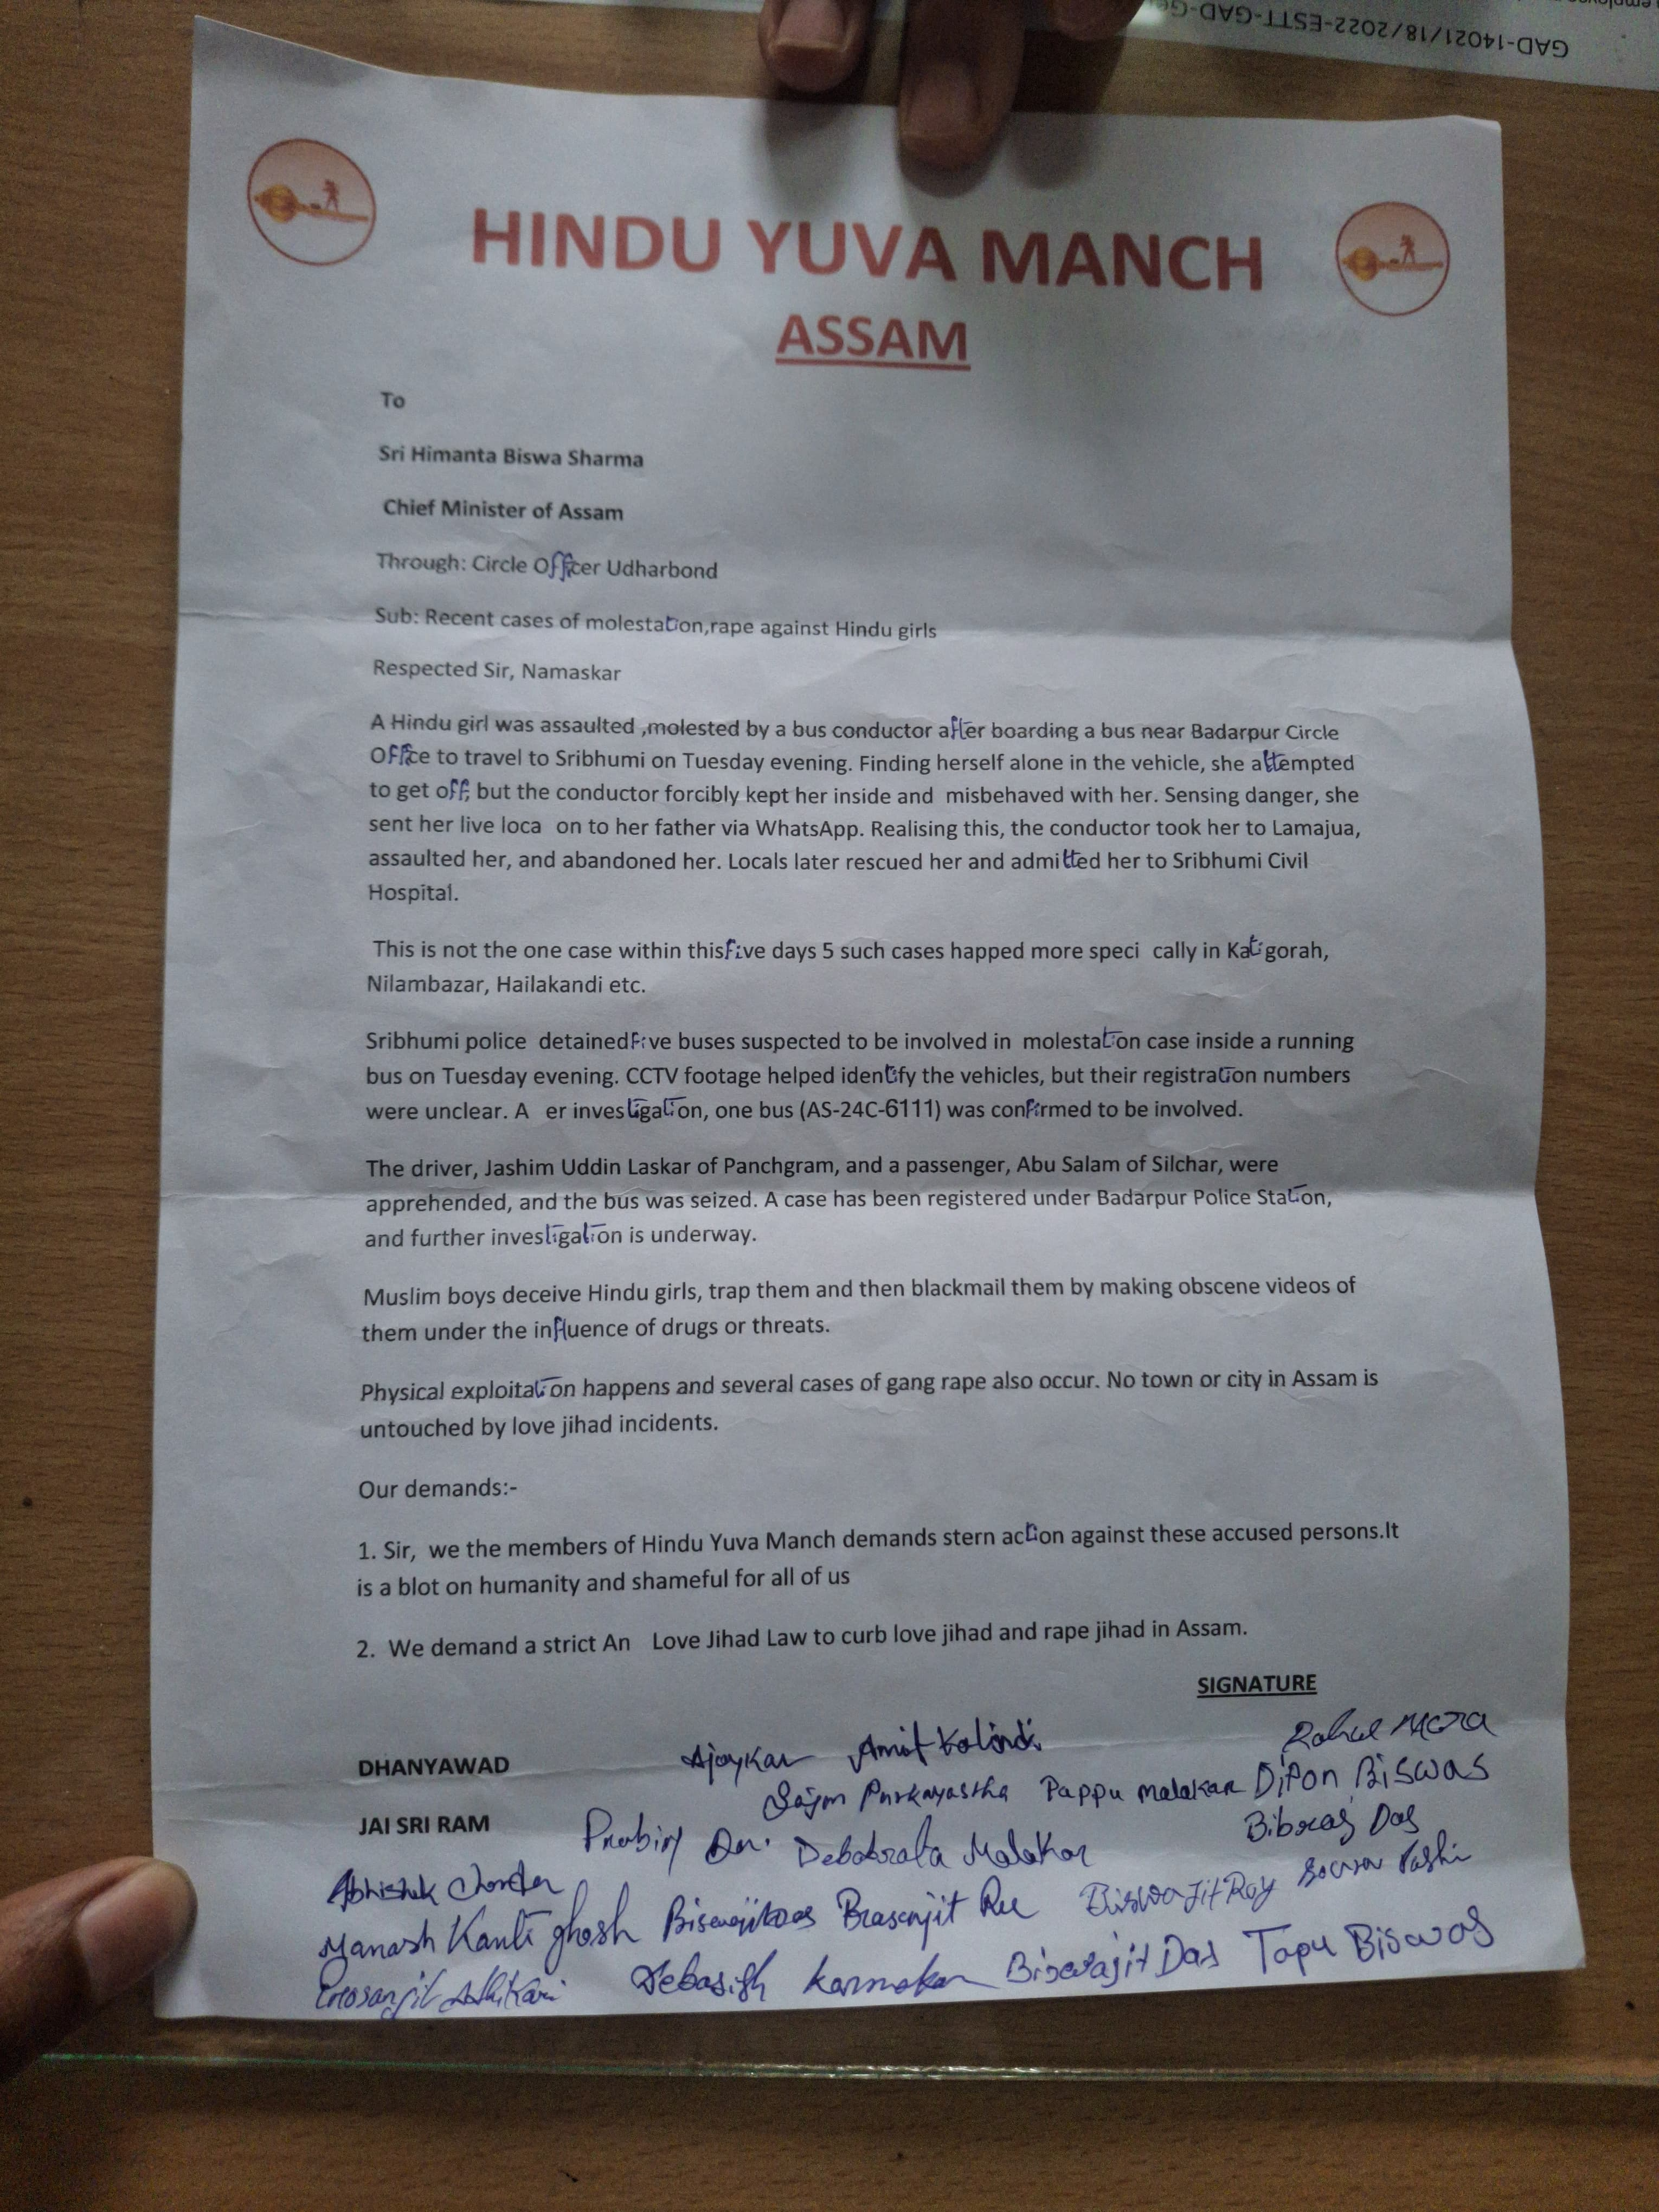 GAD-14021/18/2022-ESTT-GAD-
HINDU YUVA MANCH
ASSAM
To
Sri Himanta Biswa Sharma
Chief Minister of Assam
Through: Circle Officer Udharbond
Sub: Recent cases of molestation,rape against Hindu girls
Respected Sir, Namaskar
A Hindu girl was assaulted ,molested by a bus conductor after boarding a bus near Badarpur Circle
Office to travel to Sribhumi on Tuesday evening. Finding herself alone in the vehicle, she attempted
to get off, but the conductor forcibly kept her inside and misbehaved with her. Sensing danger, she
sent her live loca on to her father via WhatsApp. Realising this, the conductor took her to Lamajua,
assaulted her, and abandoned her. Locals later rescued her and admitted her to Sribhumi Civil
Hospital.
This is not the one case within this five days 5 such cases happed more speci cally in Katigorah,
Nilambazar, Hailakandi etc.
Sribhumi police detained five buses suspected to be involved in molestation case inside a running
bus on Tuesday evening. CCTV footage helped identify the vehicles, but their registration numbers
were unclear. A er investigation, one bus (AS-24C-6111) was confirmed to be involved.
The driver, Jashim Uddin Laskar of Panchgram, and a passenger, Abu Salam of Silchar, were
apprehended, and the bus was seized. A case has been registered under Badarpur Police Station,
and further investigation is underway.
Muslim boys deceive Hindu girls, trap them and then blackmail them by making obscene videos of
them under the influence of drugs or threats.
Physical exploitation happens and several cases of gang rape also occur. No town or city in Assam is
untouched by love jihad incidents.
Our demands:-
1. Sir, we the members of Hindu Yuva Manch demands stern action against these accused persons.It
is a blot on humanity and shameful for all of us
2. We demand a strict An Love Jihad Law to curb love jihad and rape jihad in Assam.
SIGNATURE
DHANYAWAD Ajoy Kar Amit Kalindi Rahul
Purkayastha Pappu Malakar Dipon Biswas
JAI SRI RAM Debabrata Malakar Das
Abhishek
Manash Kanti ghosh Biswajit Roy
Debasish Karmakar Biswajit Das Tapu Biswas